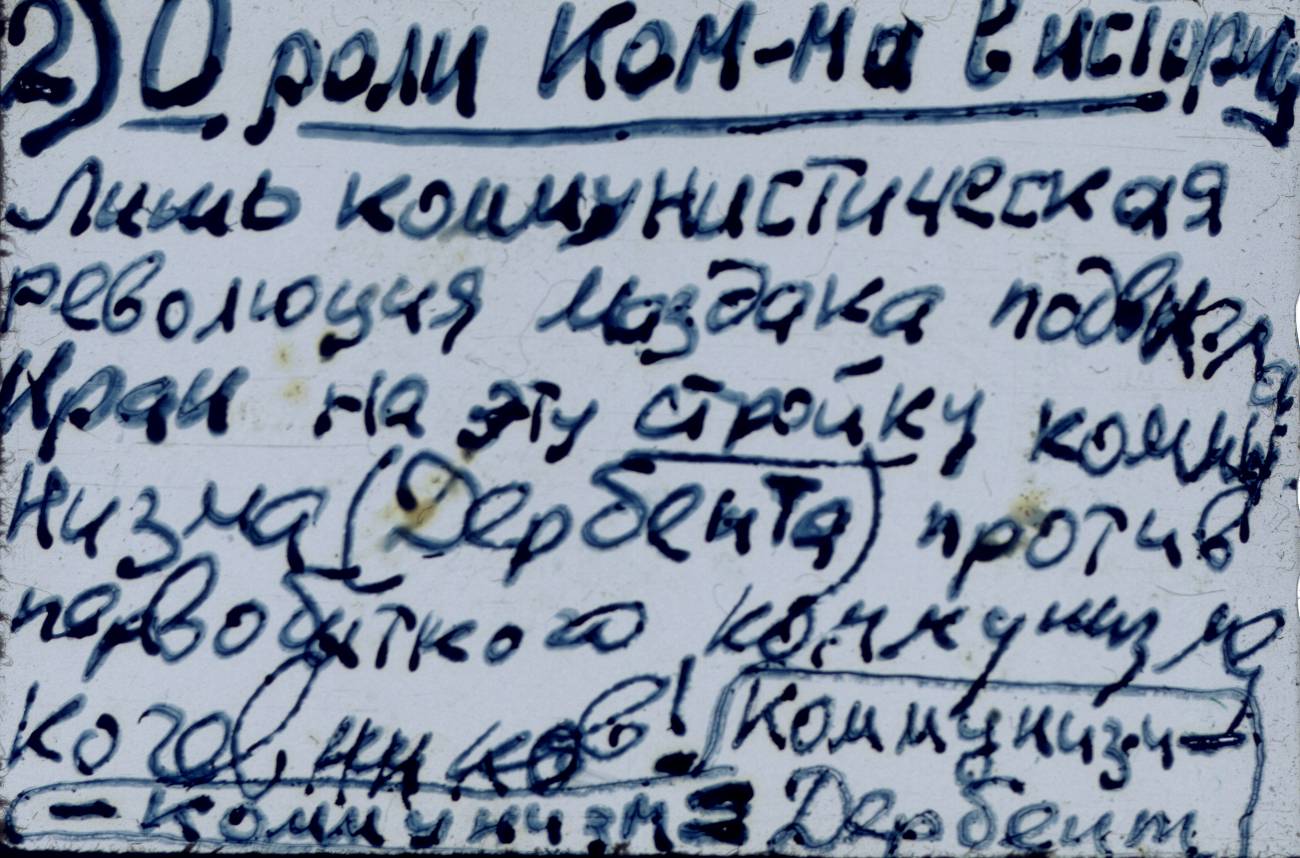 2) О роли Ком-ма в истории
Лишь коммунистическая
революция маздака подвигла
Иран на эту стройку комму-
низма (Дербента) против
первобытного коммунизма
кочевников! Коммунизм-
- коммунизм = Дербент